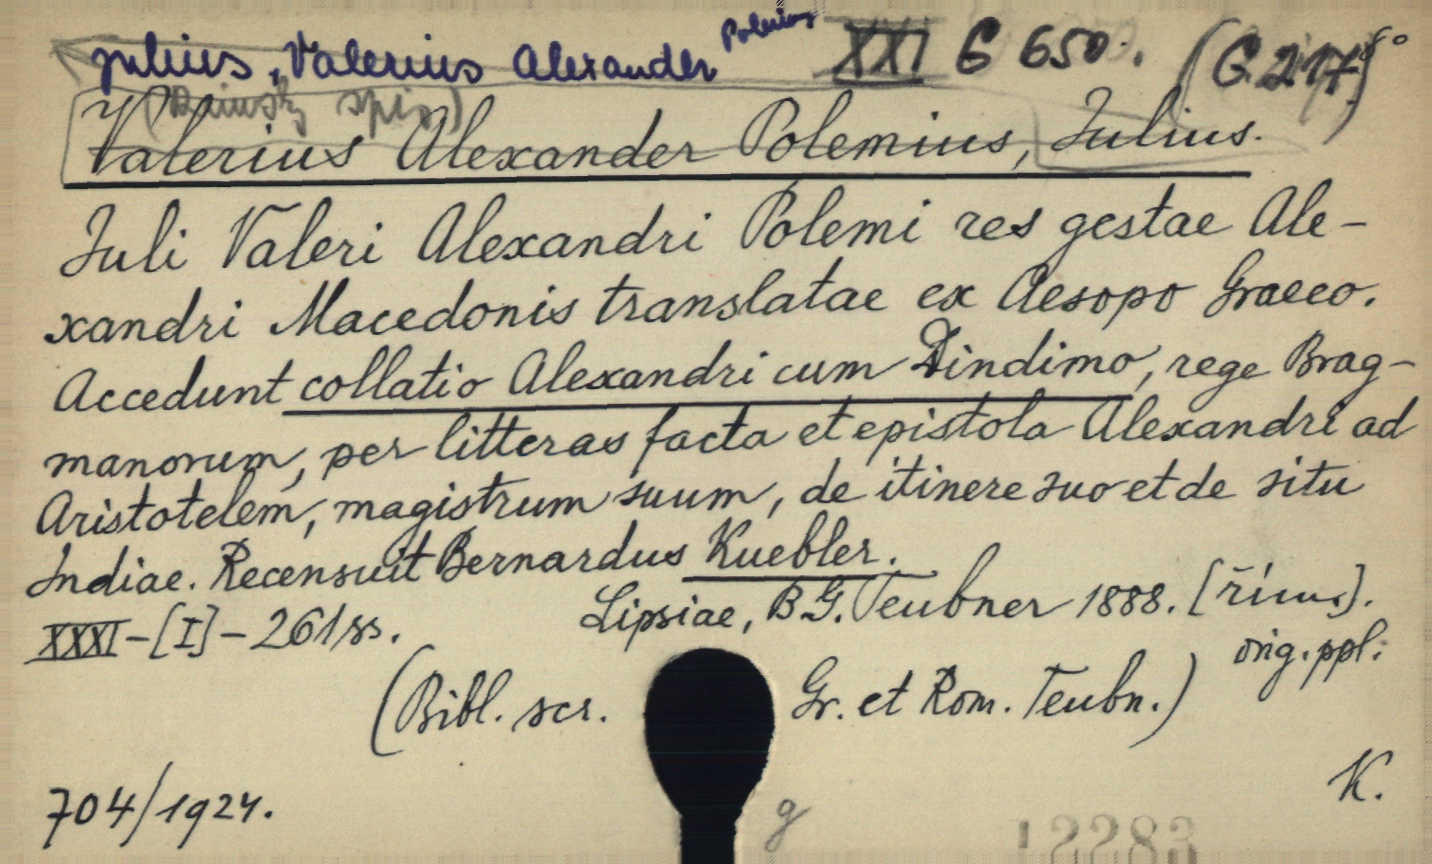 Julius, Valerius Alexander Polemius XXI G 650. (G. 217) 8°
Valerius Alexander Polemius, Julius.
Juli Valeri Alexandri Polemi res gestae Ale-
xandri Macedonis translatae ex Aesopo Graeco.
Accedunt collatio Alexandri cum Dindimo, rege Brag-
manorum, per litteras facta et epistola Alexandri ad
Aristotelem, magistrum suum, de itinere suo et de situ
Indiae. Recensuit Bernardus Kuebler.
Lipsiae, B. G. Teubner 1888.
XXXI-[I]-261 ss.
orig. ppl.
(Bibl. scr. Gr. et Rom. Teubn.)
K.
704/1924.
g
12283